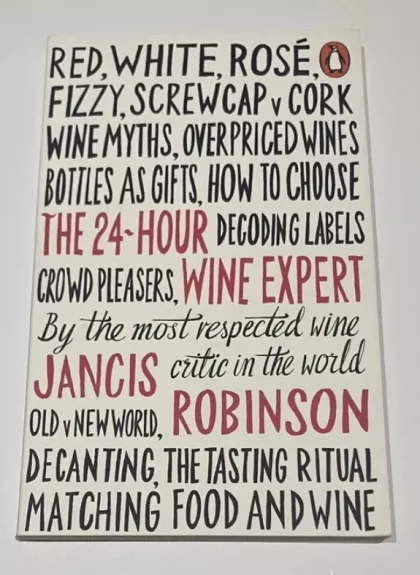 RED, WHITE, ROSÉ,
FIZZY, SCREWCAP v CORK
WINE MYTHS, OVERPRICED WINES
BOTTLES AS GIFTS, HOW TO CHOOSE
THE 24-HOUR DECODING LABELS
CROWD PLEASERS, WINE EXPERT
By the most respected wine
JANCIS critic in the world
OLD v NEW WORLD, ROBINSON
DECANTING, THE TASTING RITUAL
MATCHING FOOD AND WINE